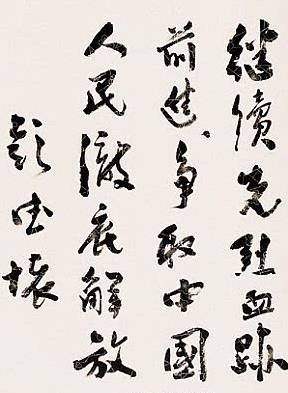 继续先烈血跡
前进、争取中國
人民澈底解放
彭德懷